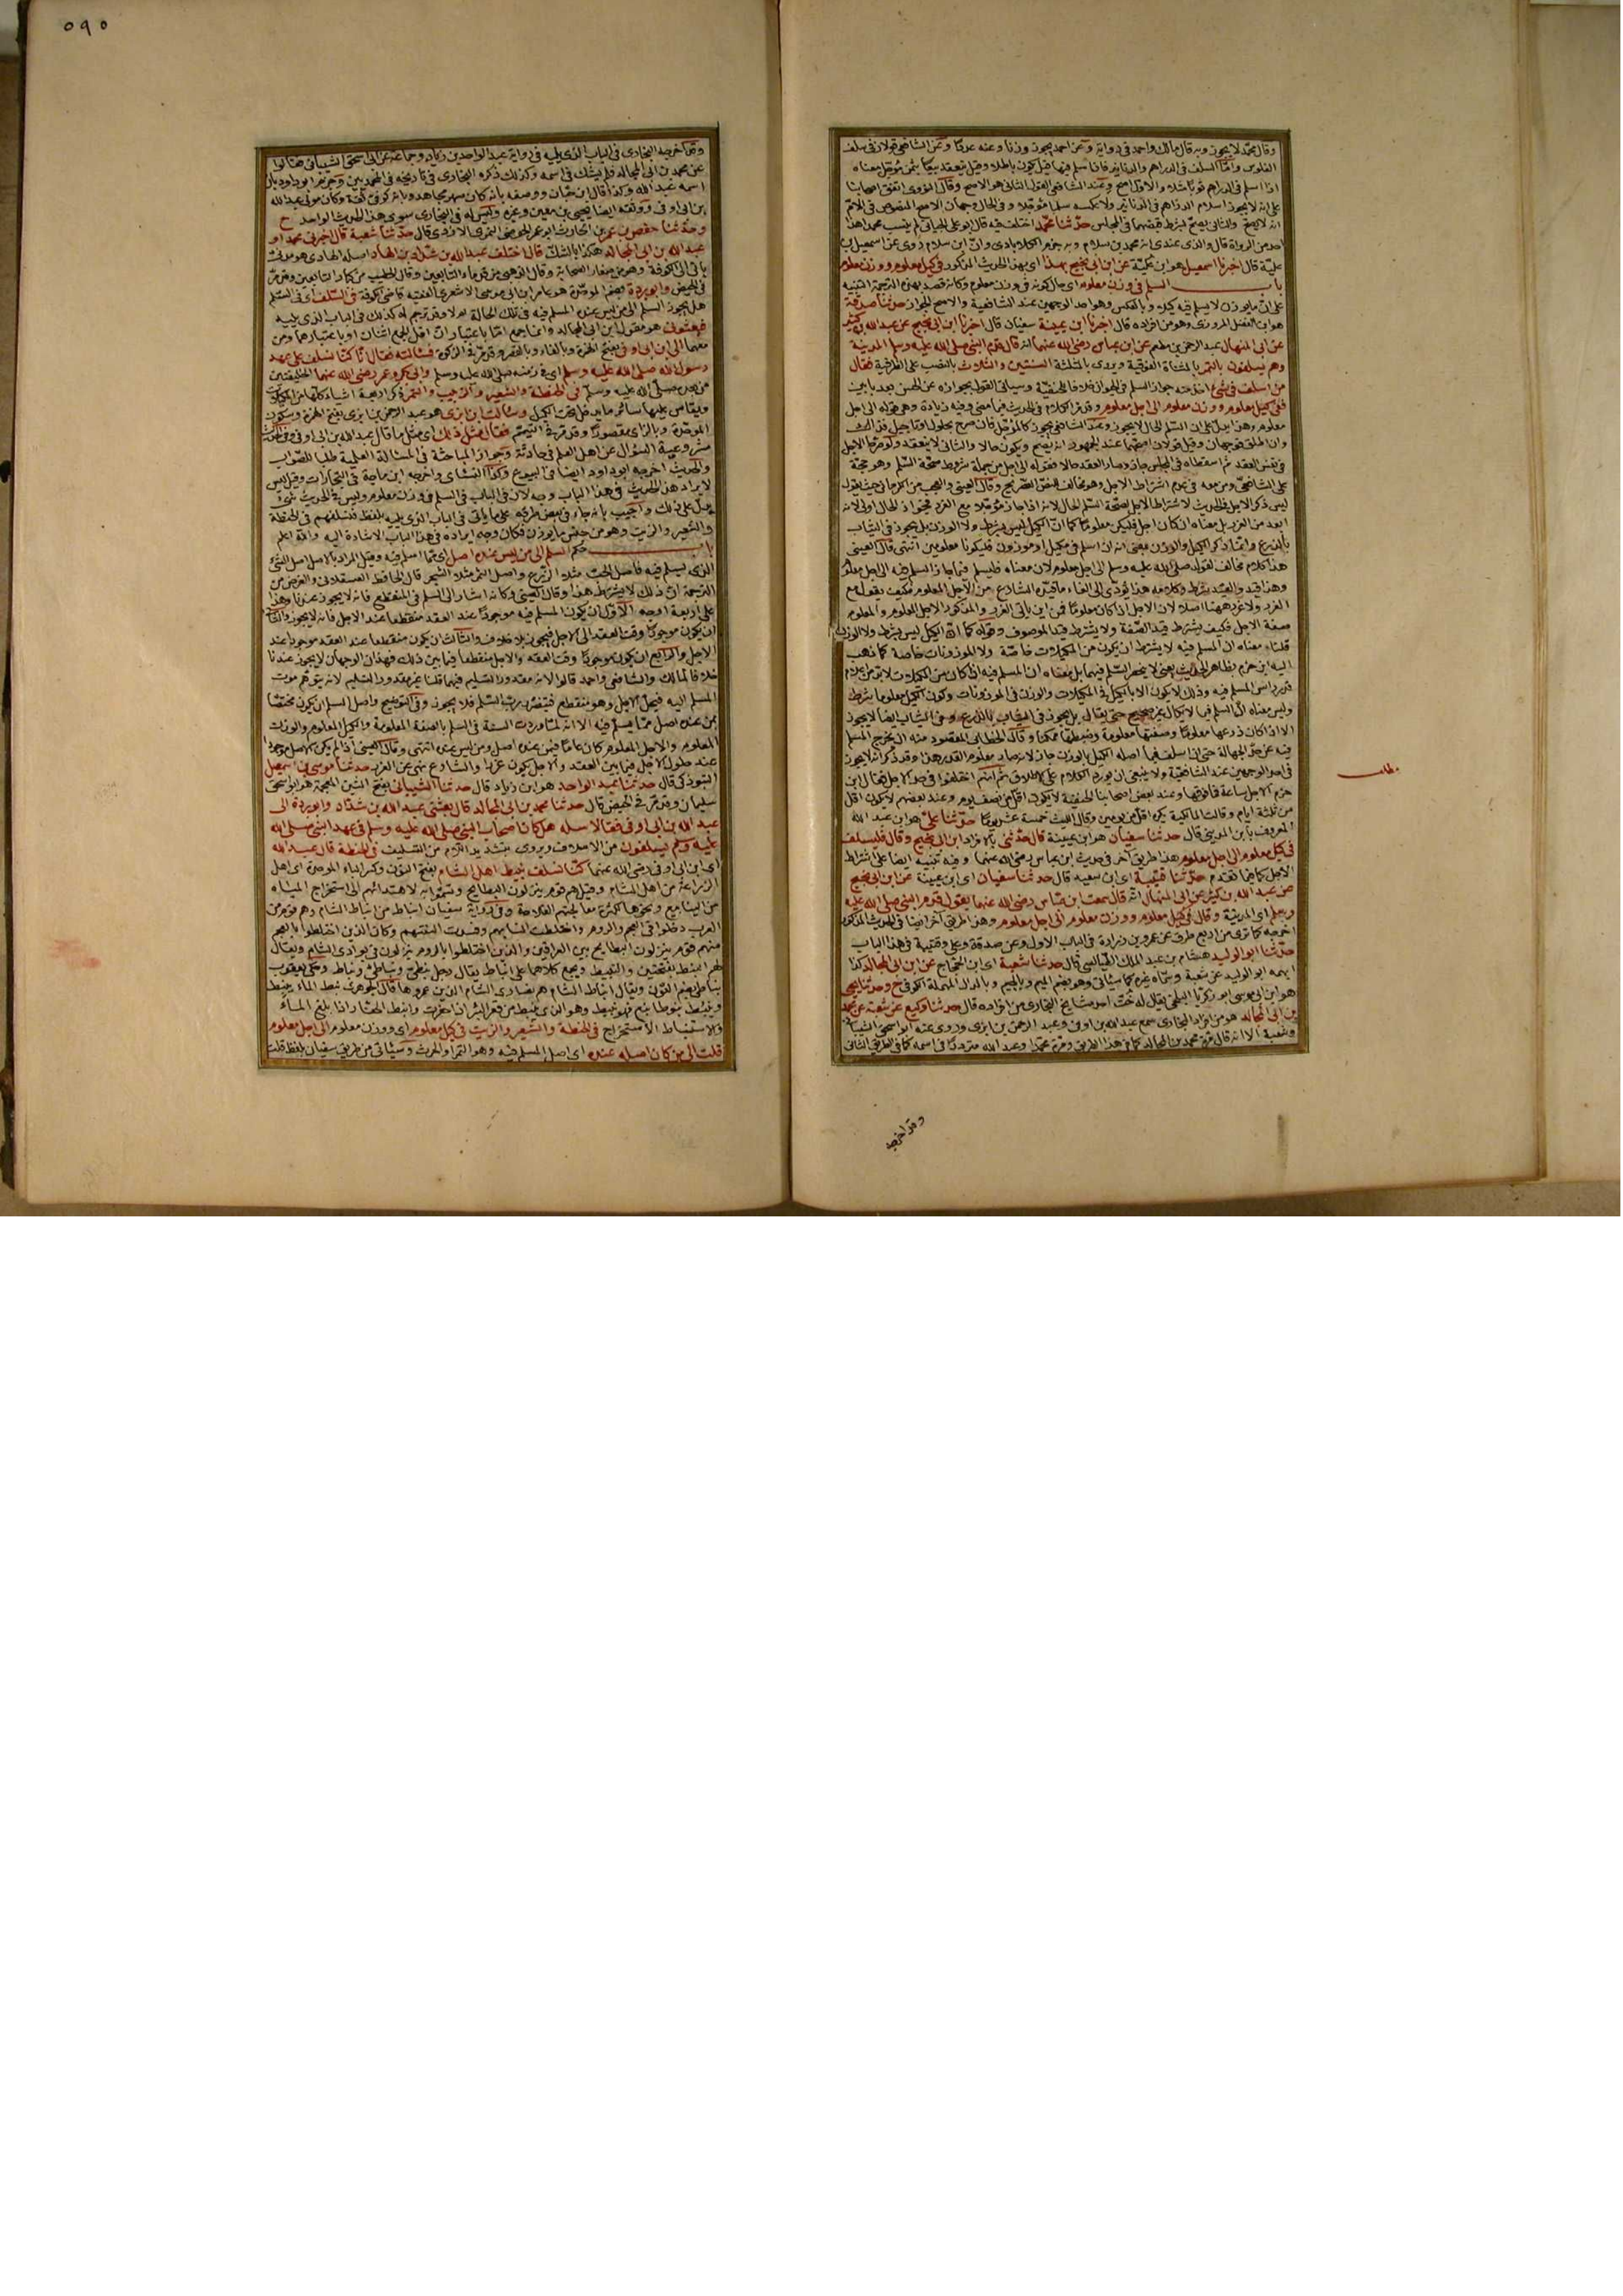 وقال محمد لا يجوز وبه قال مالك واحمد في رواية وعن احمد يجوز وزنا وعنه عددا وعن الشافعي قولان في سلف
الفلوس واما السلف في الدراهم والدنانير فاذا سلم فيها قيل يكون باطلا وقيل ينعقد بيعا بثمن مؤجل معناه
اذا اسلم في الدراهم ثوبا مثلا والاول اصح وعند الشافعي القول الثاني هو الاصح وقال النووي اتفق اصحابنا
على انه لا يجوز اسلام الدراهم في الدنانير ولا عكسه سلما مؤجلا وفي الحال وجهان الاصح المنصوص في الام
انه لا يصح والثاني يصح بشرط قبضهما في المجلس حدثنا محمد اختلف فيه قال ابو علي الجياني لم ينسب محمدا هذا
احد من الرواة قال والذي عندي انه محمد بن سلام وبه جزم الكلاباذي وان ابن سلام روى عن اسمعيل بن
علية قال اخبرنا اسمعيل هو ابن علية عن ابن ابي نجيح بهذا اي بهذا الحديث المذكور في كيل معلوم ووزن معلوم
باب السلم في وزن معلوم اي حال كونه في وزن معلوم وكانه قصد بهذه الترجمة التنبيه
على ان ما يوزن لا يسلم فيه كيلا وبالعكس وهو احد الوجهين عند الشافعية والاصح الجواز حدثنا صدقة
هو ابن الفضل المروزي وهو من افراده قال اخبرنا ابن عيينة سفيان قال اخبرنا ابن ابي نجيح عن عبد الله بن كثير
عن ابي المنهال عبد الرحمن بن مطعم عن ابن عباس رضي الله عنهما انه قال قدم النبي صلى الله عليه وسلم المدينة
وهم يسلفون بالتمر بالمثناة الفوقية ويروى بالمثلثة السنتين والثلاث بالنصب على الظرفية فقال
من اسلف في شيء اخذ منه جواز السلم في الحيوان خلافا للحنفية وسياتي القول بجوازه عن الحسن بعد بابين
ففي كيل معلوم ووزن معلوم الى اجل معلوم وقد مر الكلام في الحديث فيما مضى وفيه زيادة وهي قوله الى اجل
معلوم وهذا يدل على ان السلم الحال لا يجوز وعند الشافعي يجوز كالمؤجل فان صرح بحلول او تاجيل فذاك
وان اطلق فوجهان وقيل قولان اصحهما عند الجمهور انه يصح ويكون حالا والثاني لا ينعقد ولو صرحا بالاجل
في نفس العقد ثم اسقطاه في المجلس جاز وصار العقد حالا فقوله الى اجل من جملة شروط صحة السلم وهو حجة
على الشافعي ومن معه في عدم اشتراط الاجل وهو مخالف للنص الصريح وقال العيني والعجب من الكرماني حيث يقول
ليس ذكر الاجل في الحديث لاشتراط الاجل لصحة السلم الحال لانه اذا جاز مؤجلا مع الغرر فجواز الحال اولى لانه
ابعد من الغرر بل معناه ان كان اجل فليكن معلوما كما ان الكيل ليس بشرط ولا الوزن بل يجوز في الثياب
بالذرع وانما ذكر الكيل والوزن بمعنى انه ان اسلم في مكيل او موزون فليكونا معلومين انتهى قال العيني
هذا كلام مخالف لقوله صلى الله عليه وسلم الى اجل معلوم لان معناه فليسلم فيما جاز السلم فيه الى اجل معلوم
وهذا قيد والقيد شرط وكلامه هذا يؤدي الى الغاء ما قيده الشارع من الاجل المعلوم فكيف يقول مع
الغرر ولا غرر ههنا اصلا لان الاجل اذا كان معلوما فمن اين ياتي الغرر والمذكور الاجل المعلوم والمعلوم
صفة الاجل فكيف يشترط قيد الصفة ولا يشترط قيد الموصوف وقوله كما ان الكيل ليس بشرط ولا الوزن
قلنا معناه ان المسلم فيه لا يشترط ان يكون من المكيلات خاصة ولا الموزونات خاصة كما ذهب
اليه ابن حزم بظاهر الحديث يعني لا ينحصر السلم فيهما بل معناه ان المسلم فيه اذا كان من المكيلات لا بد من اعلام
قدر راس المسلم فيه وذلك لا يكون الا بالكيل في المكيلات والوزن في الموزونات وكون الكيل معلوما شرط
وليس معناه ان السلم فيما لا يكال غير صحيح حتى يقال بل يجوز في الثياب بالذرع وفي الثياب ايضا لا يجوز
الا اذا كان ذرعها معلوما وصفتها معلومة وضبطها ممكنا وقال الخطابي المقصود منه ان يخرج المسلم
فيه عن حد الجهالة حتى ان اسلف فيما اصله الكيل بالوزن جاز لانه صار معلوم القدر هذا وقد ذكر انه لا يجوز
في احد الوجهين عند الشافعية ولا ينبغي ان يورد الكلام على الاطلاق ثم انهم اختلفوا في حد الاجل فقال ابن
حزم الاجل ساعة فما فوقها وعند بعض اصحابنا الحنفية لا يكون اقل من نصف يوم وعند بعضهم لا يكون اقل
من ثلثة ايام وقالت المالكية يكره اقل من يومين وقال الليث خمسة عشر يوما حدثنا علي هو ابن عبد الله
المعروف بابن المديني قال حدثنا سفيان هو ابن عيينة قال حدثني بالافراد ابن ابي نجيح وقال فليسلف
في كيل معلوم الى اجل معلوم هذا طريق آخر في حديث ابن عباس رضي الله عنهما وفيه تنبيه ايضا على اشتراط
الاجل كما فيما تقدم حدثنا قتيبة اي ابن سعيد قال حدثنا سفيان اي ابن عيينة عن ابن ابي نجيح
عن عبد الله بن كثير عن ابي المنهال انه قال سمعت ابن عباس رضي الله عنهما يقول قدم النبي صلى الله عليه
وسلم اي المدينة وقال في كيل معلوم ووزن معلوم الى اجل معلوم وهذا طريق آخر ايضا في الحديث المذكور
اخرجه كما ترى من اربع طرق عن عمرو بن زرارة في الباب الاول وعن صدقة وعلي وقتيبة في هذا الباب
حدثنا ابو الوليد هشام بن عبد الملك الطيالسي قال حدثنا شعبة اي ابن الحجاج عن ابن ابي المجالد كذا
ابهمه ابو الوليد عن شعبة وسماه غيره كما سياتي وهو بضم الميم وبالجيم وبالدال المهملة الكوفي ح وحدثنا يحيى
هو ابن موسى ابو زكريا البلخي يقال له خت احد مشايخ البخاري من افراده قال حدثنا وكيع عن شعبة عن محمد
بن ابي المجالد هو من افراد البخاري سمع عبد الله بن ابي اوفى وعبد الرحمن بن ابزى وروى عنه ابو اسحق الشيباني
وشعبة الا انه قال مرة محمد بن ابي المجالد كما في هذا الطريق ومرة محمدا وعبد الله مترددا في اسمه كما في الطريق الثاني
مطلب
وقد اخرجه
٥٩٠
وقد اخرجه البخاري في الباب الذي يليه في رواية عبد الواحد بن زياد وجماعة عن ابي اسحق الشيباني فقالوا
عن محمد بن ابي المجالد فلم يشك في اسمه وكذلك ذكره البخاري في تاريخه في المحمدين وجزم ابو داود بان
اسمه عبد الله وكذا قال ابن حبان ووصفه بانه كان صهر مجاهد وبانه كوفي ثقة وكان مولى عبد الله
بن ابي اوفى ووثقه ايضا يحيى بن معين وغيره وليس له في البخاري سوى هذا الحديث الواحد ح
وحدثنا حفص بن عمر بن الحارث ابو عمر الحوضي النمري الازدي قال حدثنا شعبة قال اخبرني محمد او
عبد الله بن ابي المجالد هكذا بالشك قال اختلف عبد الله بن شداد بن الهاد اصله الهادي هو مدني
ياتي الى الكوفة وهو من صغار الصحابة وقال الذهبي من قدماء التابعين وقال الخطيب من كبار التابعين وقد مر
في الحيض وابو بردة بضم الموحدة هو عامر بن ابي موسى الاشعري الفقيه قاضي الكوفة في السلف اي في السلم
هل يجوز السلم الى من ليس عنده المسلم فيه في تلك الحالة ام لا وقد ترجم له كذلك في الباب الذي يليه
فبعثوني هو مقول ابن ابي المجالد وانما جمع اما باعتبار ان اقل الجمع اثنان او باعتبارهما ومن
معهما الى ابن ابي اوفى بفتح الهمزة وبالفاء وبالقصر وقد مر في الزكوة فسالته فقال انا كنا نسلف على عهد
رسول الله صلى الله عليه وسلم اي في زمنه صلى الله عليه وسلم وابي بكر وعمر رضي الله عنهما الخليفتين
من بعده صلى الله عليه وسلم في الحنطة والشعير والزبيب والتمر ذكر اربعة اشياء كلها من المكيلات
ويقاس عليها سائر ما يدخل تحت الكيل وسالت ابن ابزى هو عبد الرحمن بن ابزى بفتح الهمزة وسكون
الموحدة وبالزاي مقصورا وقد مر في التيمم فقال مثل ذلك اي مثل ما قال عبد الله بن ابي اوفى وفي الحديث
مشروعية السؤال عن اهل العلم في حادثة وجواز المباحثة في المسالة العلمية طلبا للصواب
والحديث اخرجه ابو داود ايضا في البيوع وكذا النسائي واخرجه ابن ماجة في التجارات وقيل ليس
لايراد هذا الحديث في هذا الباب وجه لان في الباب في السلم في وزن معلوم وليس في الحديث شيء
يدل على ذلك واجيب بانه جاء في بعض طرقه على ما ياتي في الباب الذي يليه بلفظ فنسلفهم في الحنطة
والشعير والزيت وهو من جنس ما يوزن فكان وجه ايراده في هذا الباب الاشارة اليه والله اعلم
باب حكم السلم الى من ليس عنده اصل اي مما اسلم فيه وقيل المراد بالاصل اصل الشيء
الذي يسلم فيه فاصل الحب مثلا الزرع واصل الثمر مثلا الشجر قال الحافظ العسقلاني والغرض من
الترجمة ان ذلك لا يشترط هذا وقال العيني وكانه اشار الى السلم في المنقطع فانه لا يجوز عندنا وهذا
على اربعة اوجه الاول ان يكون المسلم فيه موجودا عند العقد منقطعا عند الاجل فانه لا يجوز والثاني
ان يكون موجودا وقت العقد الى الاجل فيجوز بلا خلاف والثالث ان يكون منقطعا عند العقد موجودا عند
الاجل والرابع ان يكون موجودا وقت العقد والاجل منقطعا فيما بين ذلك فهذان الوجهان لا يجوز عندنا
خلافا لمالك والشافعي واحمد قالوا لانه مقدور التسليم فيهما قلنا غير مقدور التسليم لانه يتوهم موت
المسلم اليه فيحل الاجل وهو منقطع فيتضرر رب السلم فلا يجوز وفي التوضيح واصل السلم ان يكون مختصا
بمن عنده اصل مما يسلم فيه الا انه لما وردت السنة في السلم بالصفة المعلومة والكيل المعلوم والوزن
المعلوم والاجل المعلوم كان عاما فيمن عنده اصل ومن ليس عنده انتهى وقال العيني اذا لم يكن الاصل موجودا
عند حلول الاجل فيما بين العقد والاجل يكون غررا والشارع نهى عن الغرر حدثنا موسى بن اسمعيل
التبوذكي قال حدثنا عبد الواحد هو ابن زياد قال حدثنا الشيباني بفتح الشين المعجمة هو ابو اسحق
سليمان وقد مر في الحيض قال حدثنا محمد بن ابي المجالد قال بعثني عبد الله بن شداد وابو بردة الى
عبد الله بن ابي اوفى فقالا سله هل كان اصحاب النبي صلى الله عليه وسلم في عهد النبي صلى الله
عليه وسلم يسلفون من الاسلاف ويروى بتشديد اللام من التسليف في الحنطة قال عبد الله
اي ابن ابي اوفى رضي الله عنهما كنا نسلف نبيط اهل الشام بفتح النون وكسر الباء الموحدة اي اهل
الزراعة من اهل الشام وقيل هم قوم ينزلون البطايح وسموا به لاهتدائهم الى استخراج المياه
من الينابيع ونحوها لكثرة معالجتهم الفلاحة وفي رواية سفيان انباط من انباط الشام وهم قوم من
العرب دخلوا في العجم والروم واختلطت انسابهم وفسدت السنتهم وكان الذين اختلطوا بالعجم
منهم قوم ينزلون البطايح بين العراقين والذين اختلطوا بالروم ينزلون في بوادي الشام ويقال
لهم النبط بفتحتين والنبيط ويجمع كلاهما على انباط يقال رجل نبطي ونباطي ونباط وحكى يعقوب
نباطي بضم النون ويقال انباط الشام هم نصارى الشام الذين عمروها قال الجوهري نبط الماء ينبط
وينبط نبوطا نبع فهو نبيط وهو الذي ينبط من قعر البئر اذا حفرت وانبط الحفار اذا بلغ الماء
والاستنباط الاستخراج في الحنطة والشعير والزيت في كيل معلوم اي ووزن معلوم الى اجل معلوم
قلت الى من كان اصله عنده اي اصل المسلم فيه وهو الثمر او الحرث وسياتي من طريق سفيان بلفظ قلت